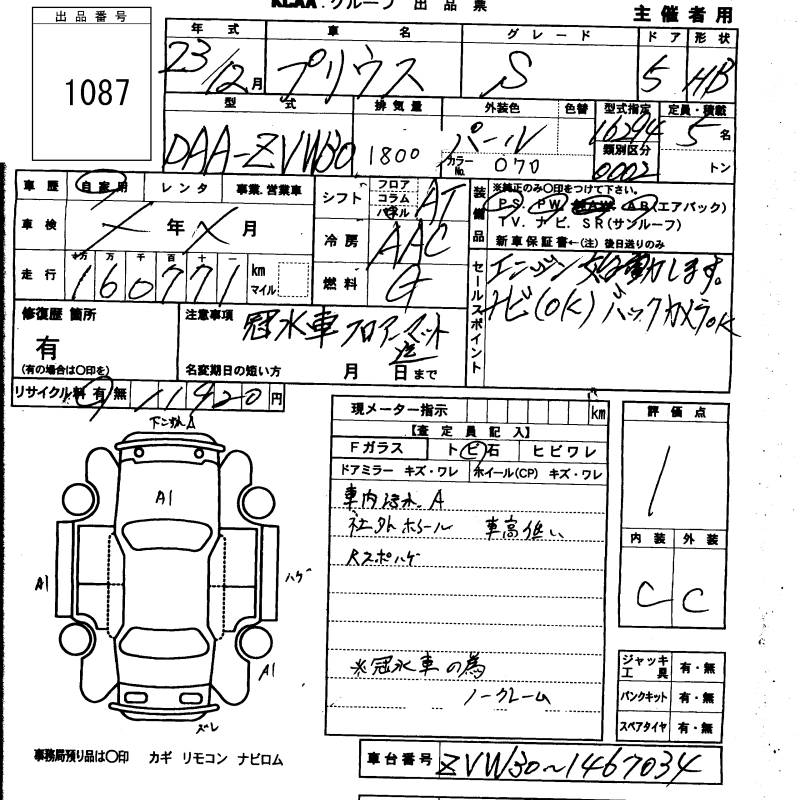 KCAA.グループ 出品票
主催者用
出品番号
1087
年式 車名 グレード ドア 形状
23/12月 プリウス S 5 HB
型式 排気量 外装色 色替 型式指定 定員・積載
DAA-ZVW30 1800 パール 16294 5名
カラーNo. 070 類別区分 0002 トン
車歴 自家用 レンタ 事業.営業車
シフト フロア コラム パネル AT
車検 年 月
冷房 AAC
走行 十万 万 千 百 十 一
160771 km マイル
燃料 G
装備品
※純正のみ〇印をつけて下さい。
PS. PW. AB(エアバック)
TV. ナビ. SR(サンルーフ)
新車保証書←(注)後日送りのみ
セールスポイント
エンジン始動します。
ナビ(OK) バックカメラOK
修復歴 箇所
有
(有の場合は〇印を)
注意事項 冠水車 フロアーマット
名変期日の短い方 月 日まで
リサイクル料 有 無 11920円
現メーター指示 km
【査定員記入】
Fガラス トビ石 ヒビワレ
ドアミラー キズ・ワレ ホイール(CP) キズ・ワレ
車内汚れ A
社外ホイール 車高低い
Rスポハゲ
※冠水車の為
ノークレーム
評価点
1
内装 外装
C C
A1
A1
ハゲ
A1
ズレ
ジャッキ工具 有・無
パンクキット 有・無
スペアタイヤ 有・無
事務局預り品は〇印 カギ リモコン ナビロム
車台番号 ZVW30~1467034